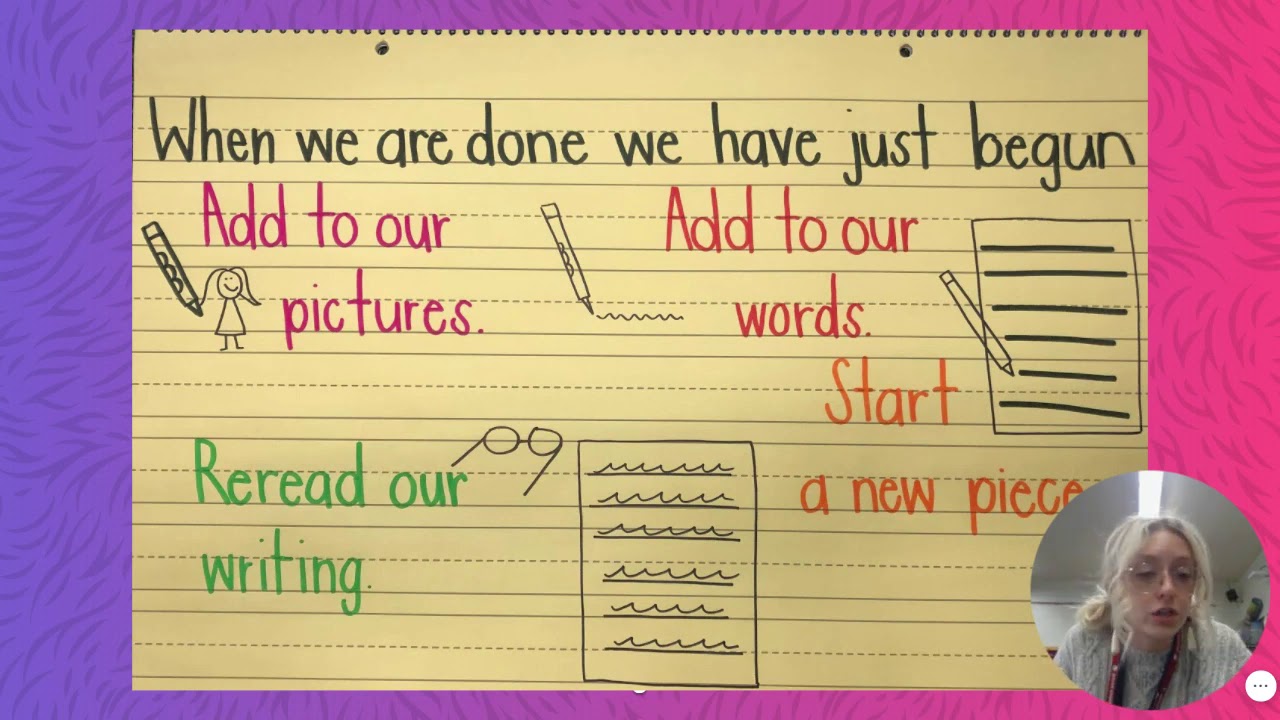 When we are done we have just begun
Add to our
pictures.
Add to our
words.
Reread our
writing.
Start
a new piece